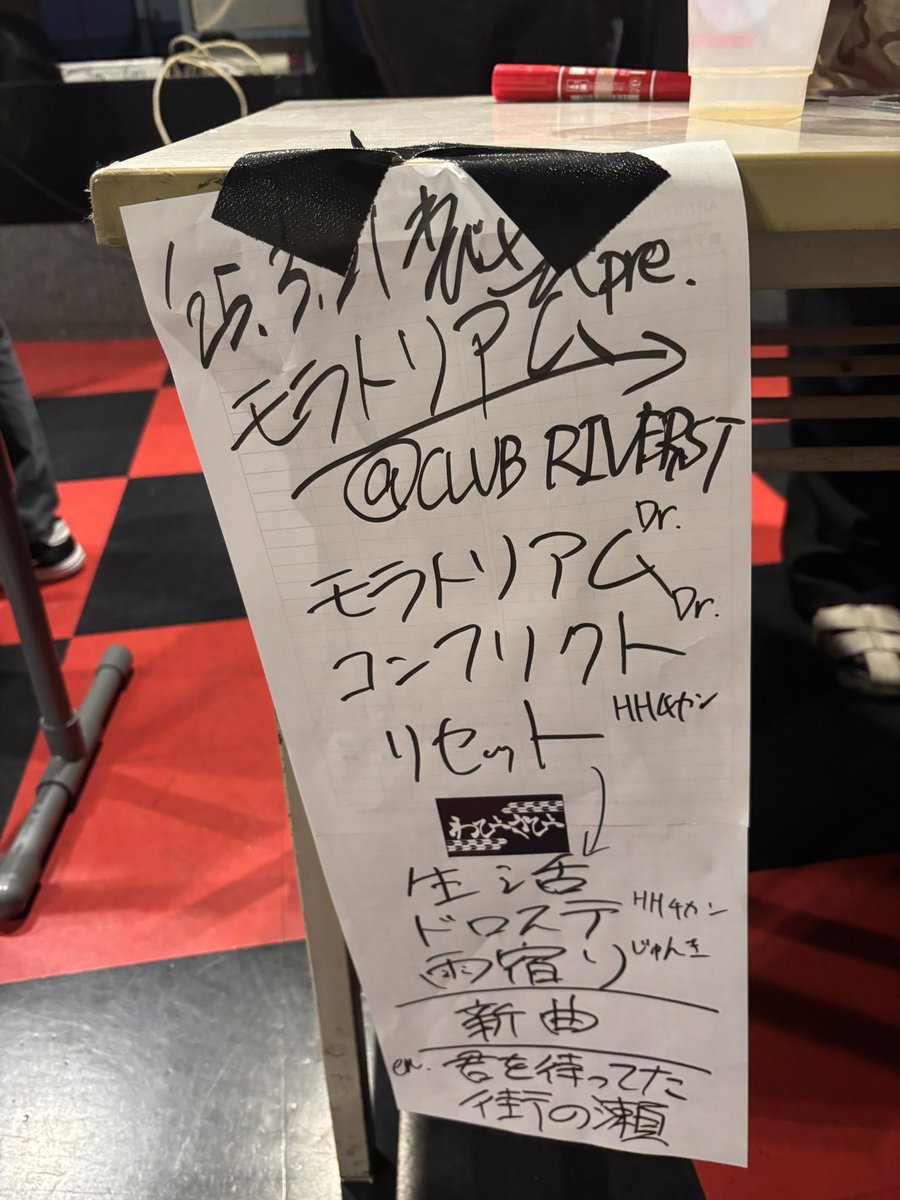 '25.3.1 わびさび pre.
モラトリアム
@CLUB RIVERST
モラトリアム Dr.
コンフリクト Dr.
リセット HH4カン
わびさび
生活
ドロステ HH4カン
雨宿り じゅんき
新曲
en. 君を待ってた
街の瀬